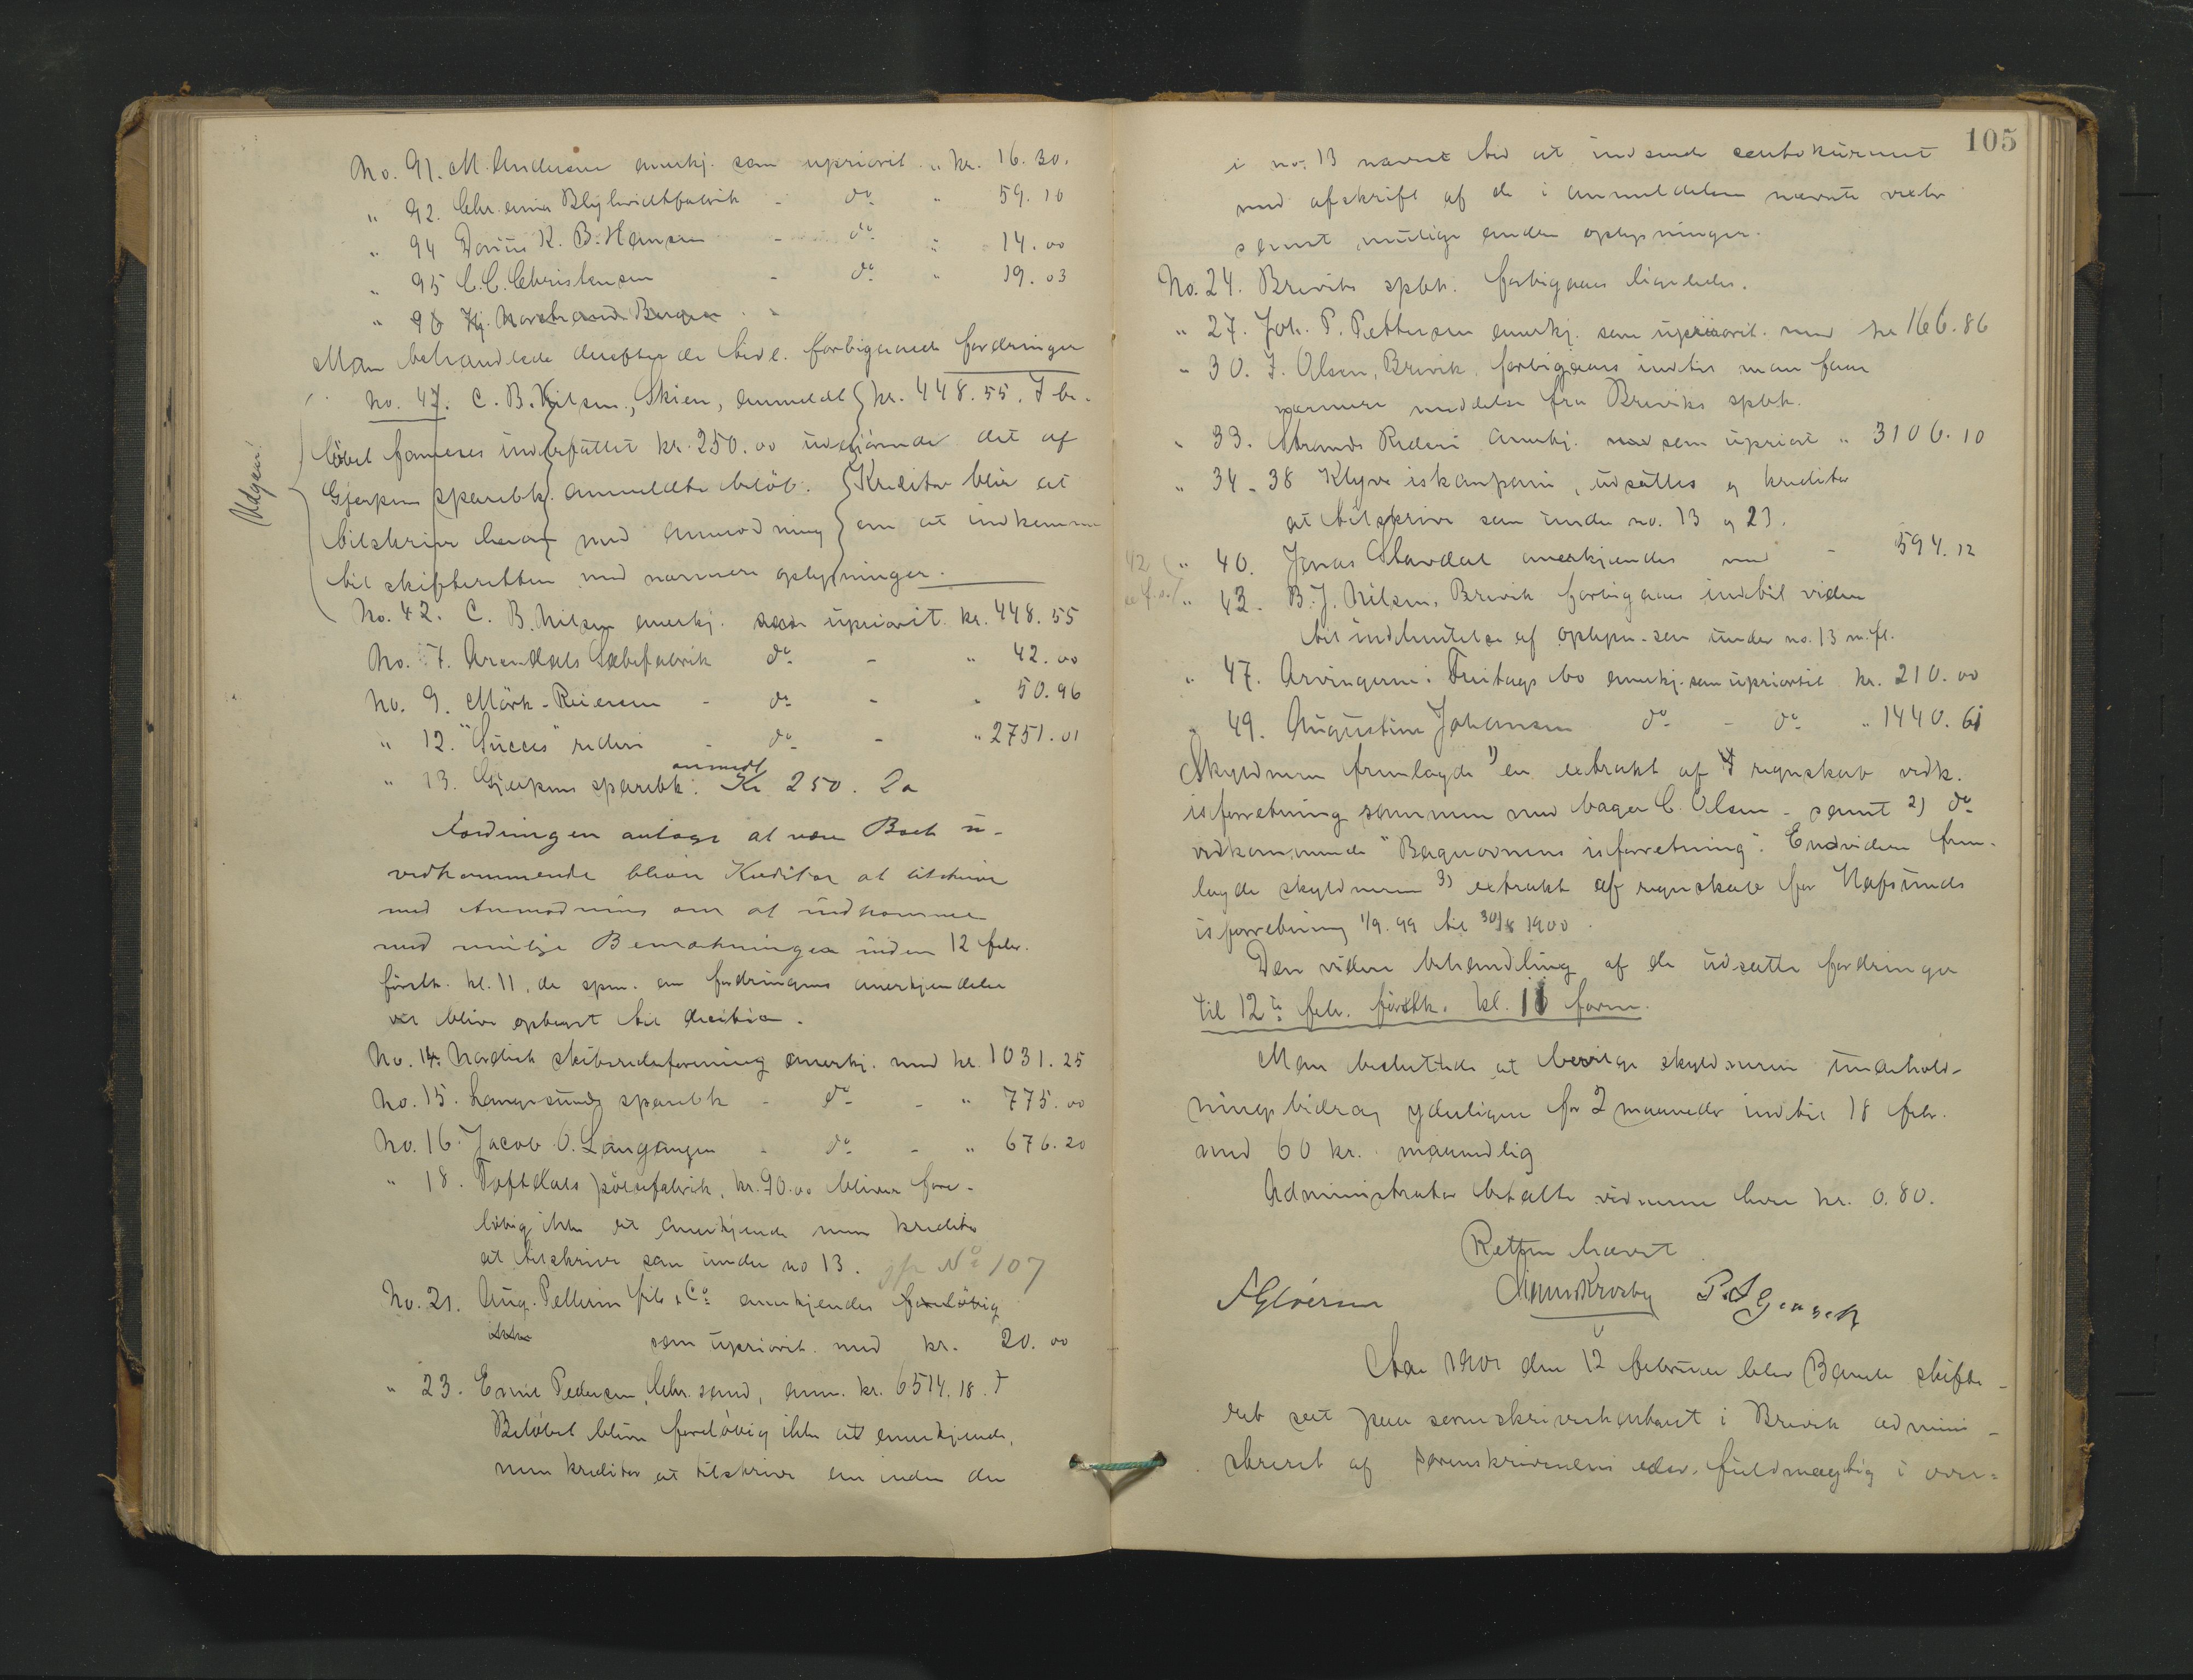 No. 91. M. Andersen anerkj. som upriorit. " kr. 16.30.
" 92. Chr.ania Blyhvidtfabrik - do " 59.10
" 94 Darius K. B. Hansen - do " 14.00
" 95 C. C. Christensen - do " 19.03
" 96 Hj. Norstrand Bergen - "
Man behandlede derefter de tidl. forbigaaede fordringer
No. 47. C. B. Nilsen, Skien, anmeldt kr. 448.55. I be-
löbet formenes indbefattet kr. 250.00 udgjörende det af
Gjerpens sparebk. anmeldte belöb. Kreditor blir at
tilskrive herom med anmodning om at indkomme
til skifteretten med nærmere oplysninger.
Udgaar!
No. 42. C. B. Nilsen anerkj. som upriorit. kr. 448.55
No. 7. Arendals Sæbefabrik do - " 42.00
No. 9. Mörk-Reiersen - do - " 50.96
" 12. "Succes" rederi - do - " 2751.01
" 13. Gjerpens sparebk: anmeldt Kr 250. Da
fordringen antages at være Boet u-
vedkommende bliver Kreditor at tilskrive
med Anmodning om at indkomme
med mulige Bemærkninger inden 12 febr.
förstk. kl. 11, da spm. om fordringens anerkjendelse
vil blive optaget til decision.
No. 14. Nordisk skibsrederforening anerkj. med kr. 1031.25
No. 15. Langesunds sparebk - do - " 775.00
No. 16. Jacob O. Langangen - do - " 676.20
" 18. Toftdals pölsefabrik, kr. 90.00 bliver fore-
löbig ikke at anerkjende men kreditor
at tilskrive som under no 13. jfr No 107
No. 21. Aug. Pellerin fils & Co anerkjendes forelöbig
ikke som upriorit. med kr. 20.00
" 23. Emil Pedersen, Chr.sand, anm. kr. 6514.18.
Belöbet bliver forelöbig ikke at anerkjende,
men kreditor at tilskrive om inden den
105
i no. 13 nævnte tid at indsende
med afskrift af de i anmeldelsen nævnte vexler
samt mulige andre oplysninger.
No. 24. Breviks spbk. forbigaaes ligeledes.
" 27. Joh. P. Pettersen anerkj. som upriorit. med kr 166.86
" 30. J. Olsen, Brevik, forbigaaes indtil man faar
nærmere meddelse fra Breviks spbk.
" 33. Strands Rederi anerkj. med som upriorit " 3106.10
" 34-38 Klyve iskompani, udsættes og kreditor
at tilskrive som under no. 13 og 23.
42 " 40. Jonas Stavdal anerkjendes med - 594.12
" 43. B. J. Nilsen, Brevik forbigaaes indtil videre
til indhentelse af oplysn. som under no. 13 m. fl.
" 47. Arvingerne i Freitags bo anerkj. som upriorit kr. 210.00
" 49. Augustine Johansen do - do " 1440.61
Skyldneren fremlagde 1) en extrakt af regnskab vedk.
isforretning sammen med bager C. Olsen - samt 2) do
vedkommende "Bagerovnens isforretning". Endvidere frem-
lagde skyldneren 3) extrakt af regnskab for Hafsunds
isforretning 1/9. 99 til 30/8 1900.
Den videre behandling af de udsatte fordringer
til 12te febr. förstk. kl. 11 form.
Man besluttede at bevilge skyldneren underhold-
ningsbidrag yderligere for 2 maaneder indtil 18 febr.
med 60 kr. maanedlig
Administrator betalte vidnerne hver kr. 0.80.
Retten hævet.
Aar 1901 den 12 februar blev Bamle skifte-
ret sat paa sorenskriverkontoret i Brevik admini-
streret af sorenskriverens edsv. fuldmægtig i over=